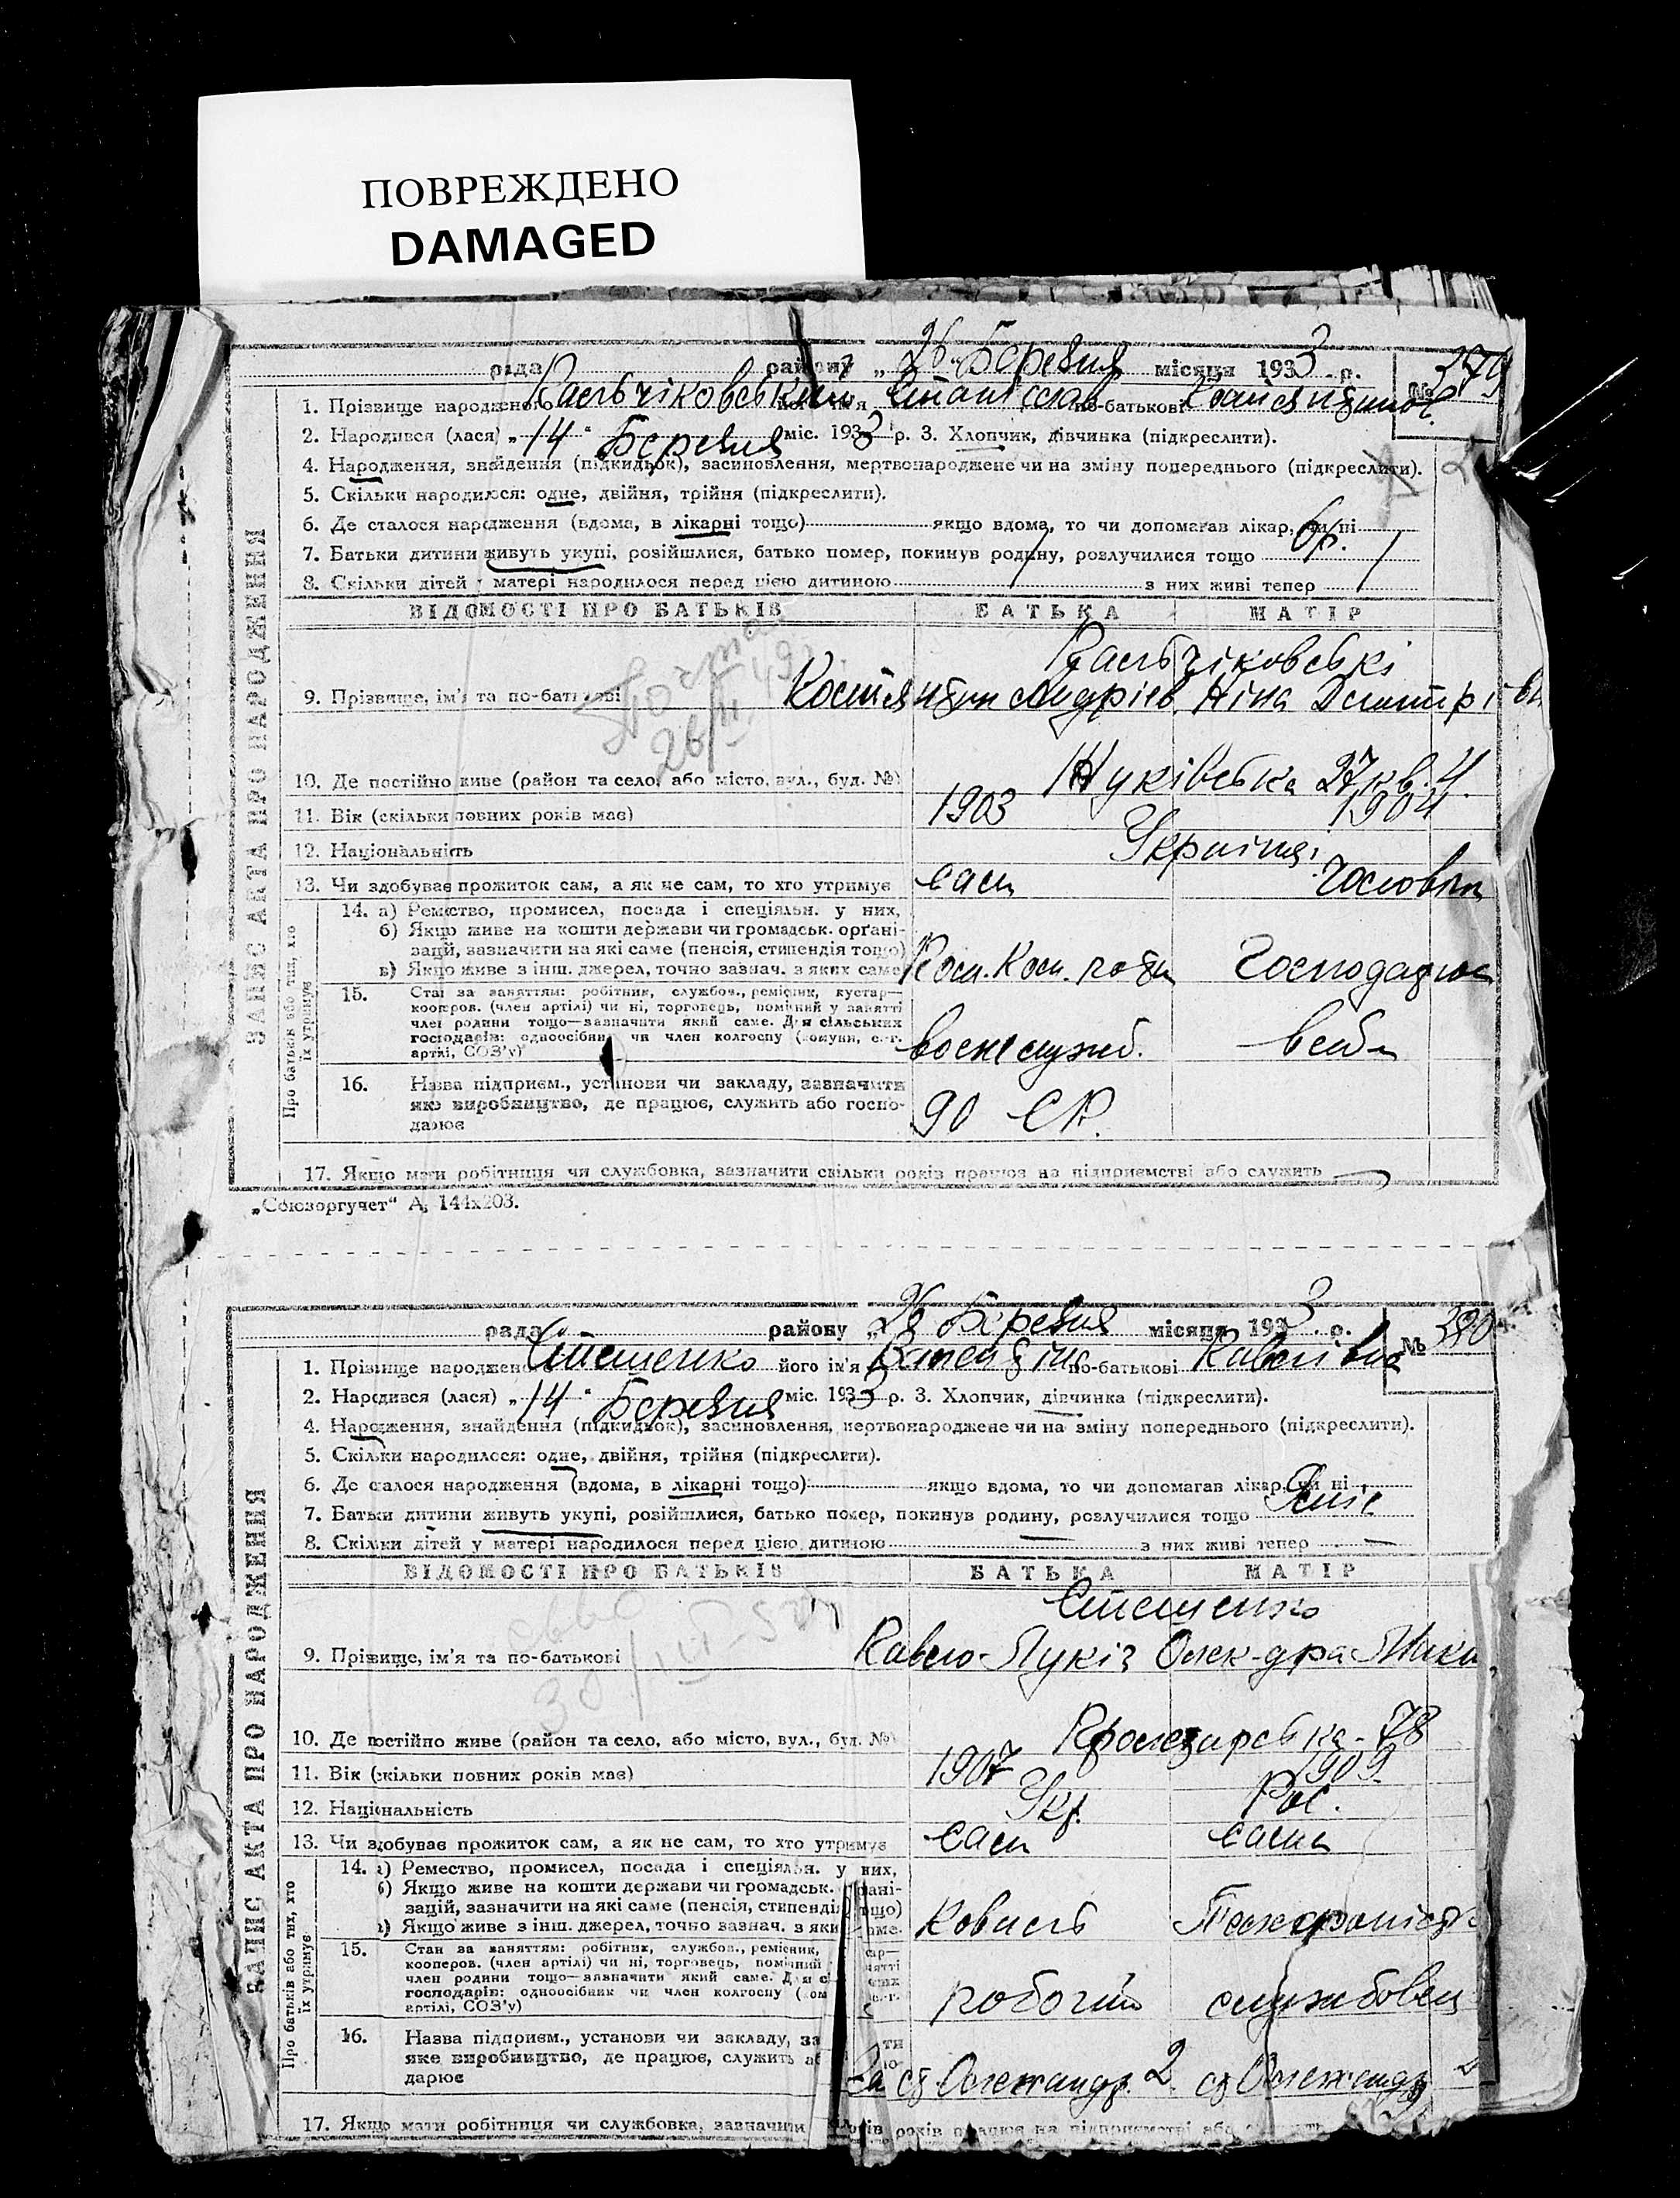 ПОВРЕЖДЕНО
DAMAGED
рада району „26“ Березня місяця 1933 р. № 379
1. Прізвище народженого його ім'я Станіслав по-батькові
2. Народився (лася) „14“ Березня міс. 1933 р. 3. Хлопчик, дівчинка (підкреслити).
4. Народження, знайдення (підкидьок), засиновлення, мертвонароджене чи на зміну попереднього (підкреслити).
5. Скільки народилося: одне, двійня, трійня (підкреслити).
6. Де сталося народження (вдома, в лікарні тощо) якщо вдома, то чи допомагав лікар, чи ні
7. Батьки дитини живуть укупі, розійшлися, батько помер, покинув родину, розлучилися тощо
8. Скільки дітей у матері народилося перед цією дитиною з них живі тепер
ВІДОМОСТІ ПРО БАТЬКІВ БАТЬКА МАТІР
ЗАПИС АКТА ПРО НАРОДЖЕННЯ
9. Прізвище, ім'я та по-батькові Костянтин Андріев. Ніна
10. Де постійно живе (район та село, або місто, вул., буд. №) 27 кв. 4.
11. Вік (скільки повних років має) 1903 1904
12. Національність Українці
13. Чи здобуває прожиток сам, а як не сам, то хто утримує сам
Про батьків або тих, хто їх утримує
14. а) Ремество, промисел, посада і спеціяльн. у них,
б) Якщо живе на кошти держави чи громадськ. орґані-
зацій, зазначити на які саме (пенсія, стипендія тощо)
в) Якщо живе з інш. джерел, точно зазнач. з яких саме
15. Стан за заняттям: робітник, службов., ремісник, кустар—
кооперов. (член артілі) чи ні, торговець, помічний у занятті
член родини тощо—зазначити який саме. Для сільських
господарів: одноосібник чи член колгоспу (комуни, с.-г.
артілі, СОЗ'у)
16. Назва підприєм., установи чи закладу, зазначити
яке виробництво, де працює, служить або госпо-
дарює
90 СП.
17. Якщо мати робітниця чи службовка, зазначити скільки років працює на підприємстві або служить
„Союзоргучет“ А, 144х203.
рада району „26 Березня місяця 1933 р. № 380
1. Прізвище народжен Стешенко його ім'я Валентина по-батькові Павлівна
2. Народився (лася) „14“ Березня міс. 1933 р. 3. Хлопчик, дівчинка (підкреслити).
4. Народження, знайдення (підкидьок), засиновлення, мертвонароджене чи на зміну попереднього (підкреслити).
5. Скільки народилося: одне, двійня, трійня (підкреслити).
6. Де сталося народження (вдома, в лікарні тощо) якщо вдома, то чи допомагав лікар, чи ні
7. Батьки дитини живуть укупі, розійшлися, батько помер, покинув родину, розлучилися тощо
8. Скільки дітей у матері народилося перед цією дитиною з них живі тепер
ВІДОМОСТІ ПРО БАТЬКІВ БАТЬКА МАТІР
ЗАПИС АКТА ПРО НАРОДЖЕННЯ
Стешенко
9. Прізвище, ім'я та по-батькові Павло Лукіч Олек-дра
10. Де постійно живе (район та село, або місто, вул., буд. №) 78
11. Вік (скільки повних років має) 1907 1909
12. Національність Укр. Рос.
13. Чи здобуває прожиток сам, а як не сам, то хто утримує сам сама
Про батьків або тих, хто їх утримує
14. а) Ремество, промисел, посада і спеціяльн. у них,
б) Якщо живе на кошти держави чи громадськ.
зацій, зазначити на які саме (пенсія, стипендія тощо)
в) Якщо живе з інш. джерел, точно зазнач. з яки
Коваль
15. Стан за заняттям: робітник, службов., ремісник,
кооперов. (член артілі) чи ні, торговець, помічний
член родини тощо—зазначити який саме.
господарів: одноосібник чи член колгоспу
артілі, СОЗ'у)
робочий службовец
16. Назва підприєм., установи чи закладу,
яке виробництво, де працює, служить
дарює
17. Якщо мати робітниця чи службовка, зазначити років працює на підприємстві або